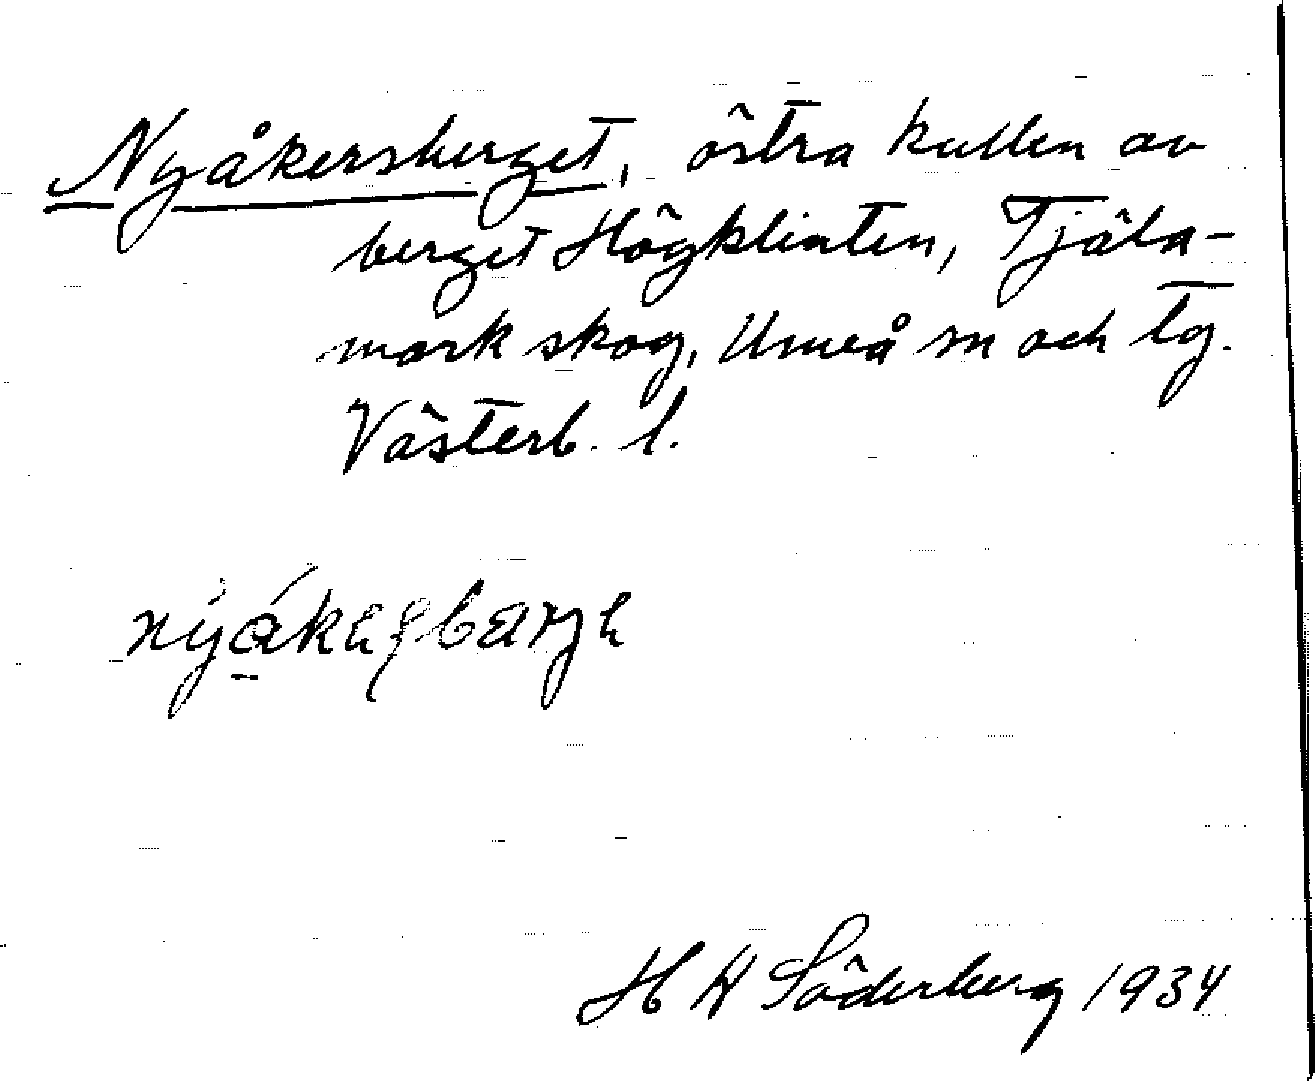 Nyåkersberget, östra kullen av
berget Högklinten, Tjäla-
mark skog, Umeå sn och tg.
Västerb. l.
H W Söderberg 1934